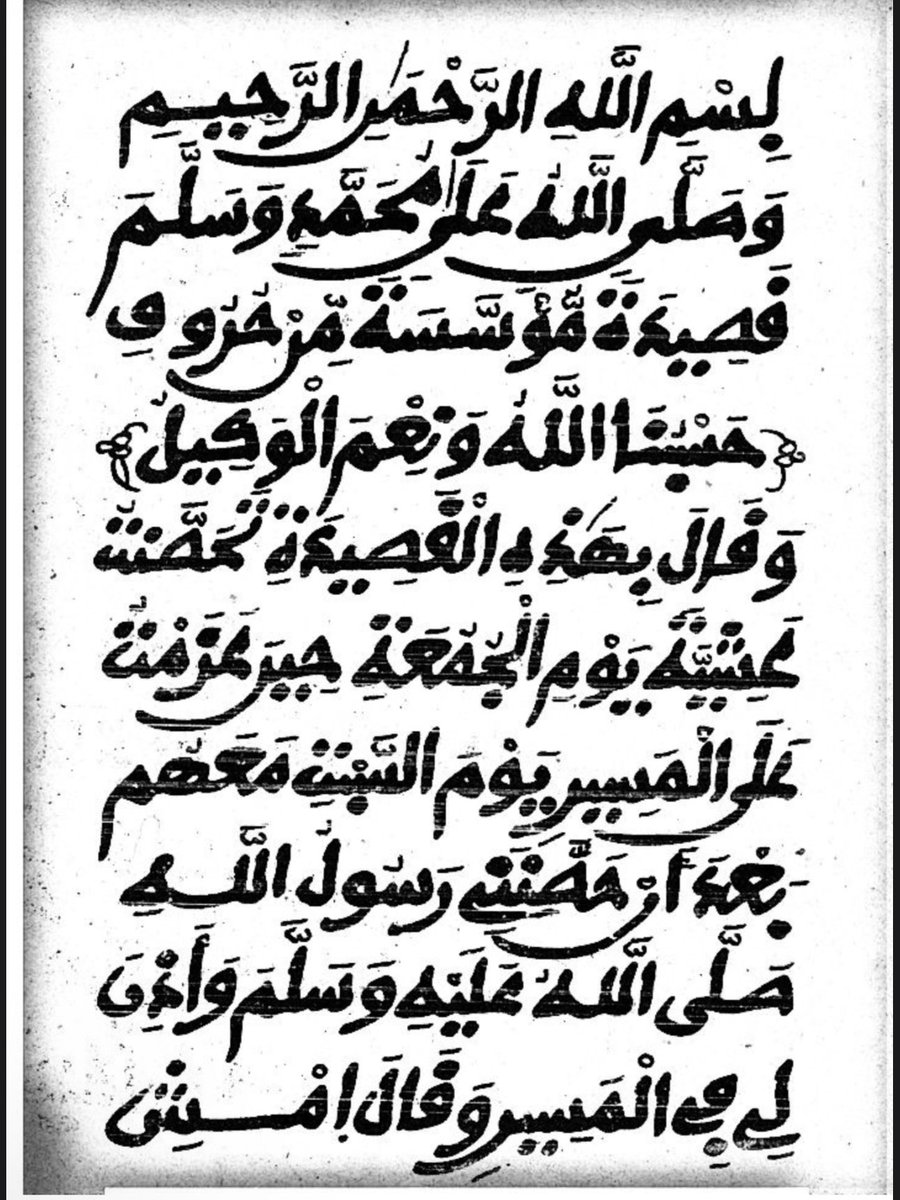 بِسْمِ اللَّهِ الرَّحْمَٰنِ الرَّحِيمِ
وَصَلَّى اللَّهُ عَلَى مُحَمَّدٍ وَسَلَّمَ
قَصِيدَةٌ مُّؤَسَّسَةٌ مِّنْ حُرُوفِ
حَسْبُنَا اللَّهُ وَنِعْمَ الْوَكِيلُ
وَقَالَ بِهَٰذِهِ الْقَصِيدَةِ تَحَصَّنْتُ
عَشِيَّةَ يَوْمِ الْجُمُعَةِ حِينَ عَزَمْتُ
عَلَى الْمَسِيرِ يَوْمَ السَّبْتِ مَعَهُمْ
بَعْدَ أَنْ حَصَّنَنِي رَسُولُ اللَّهِ
صَلَّى اللَّهُ عَلَيْهِ وَسَلَّمَ وَأَذِنَ
لِي فِي الْمَسِيرِ وَقَالَ امْشِ